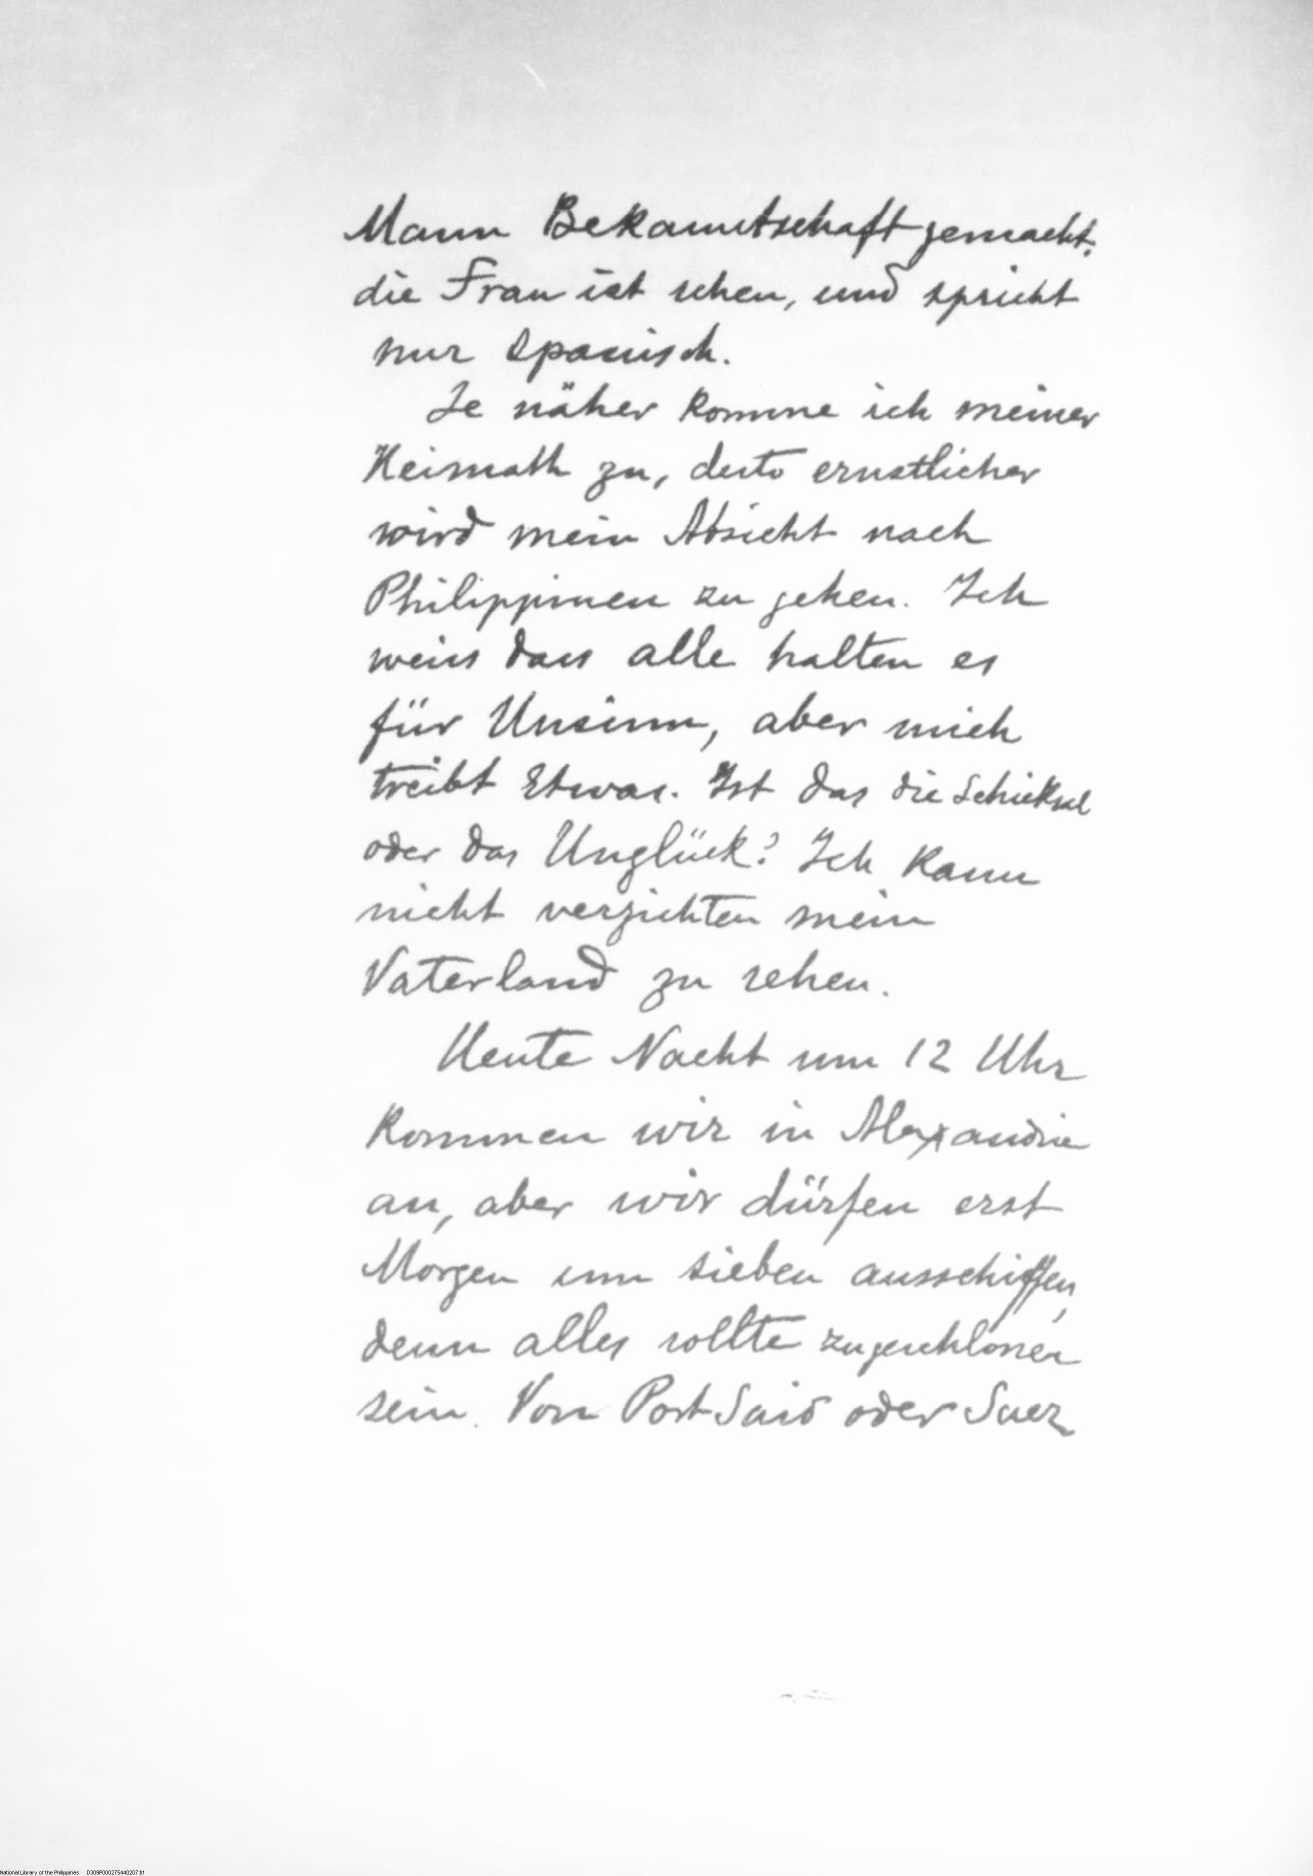 Mann Bekanntschaft gemacht;
die Frau ist schen, und spricht
nur Spanisch.
Je näher komme ich meiner
Heimath zu, desto ernstlicher
wird mein Absicht nach
Philippinen zu gehen. Ich
weiss dass alle halten es
für Unsinn, aber mich
treibt Etwas. Ist das die Schicksal
oder das Unglück? Ich kann
nicht verzichten mein
Vaterland zu sehen.
Heute Nacht um 12 Uhr
kommen wir in Alexandrie
an, aber wir dürfen erst
Morgen um sieben ausschiffen,
denn alles sollte zugeschlossen
sein. Von Port Said oder Suez
National Library of the Philippines D309P0002754A0207.tif